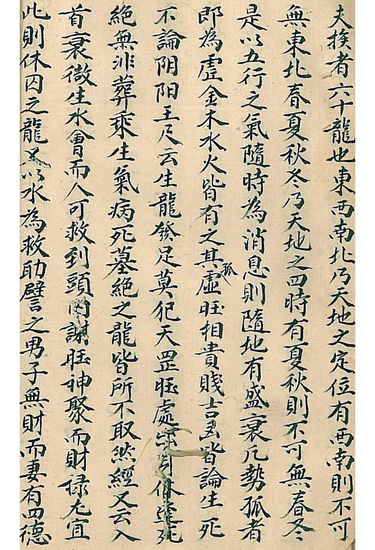 夫挨者六十龍也東西南北乃天地之定位有西南則不可
無東北春夏秋冬乃天地之四時有夏秋則不可無春冬
是以五行之氣隨時為消息則隨地有盛衰凡勢孤者
即為虛金木水火皆有之其孤虛旺相貴賤吉凶皆論生死
不論阴阳王乃云生龍發足莫犯天罡旺處
絕無非葬乘生氣病死墓絕之龍皆所不取然經又云入
首衰微生水會而人可救到頭囚謝旺神聚而財祿尤宜
此則休囚之龍又以水為救助譬之男子無財而妻有四德